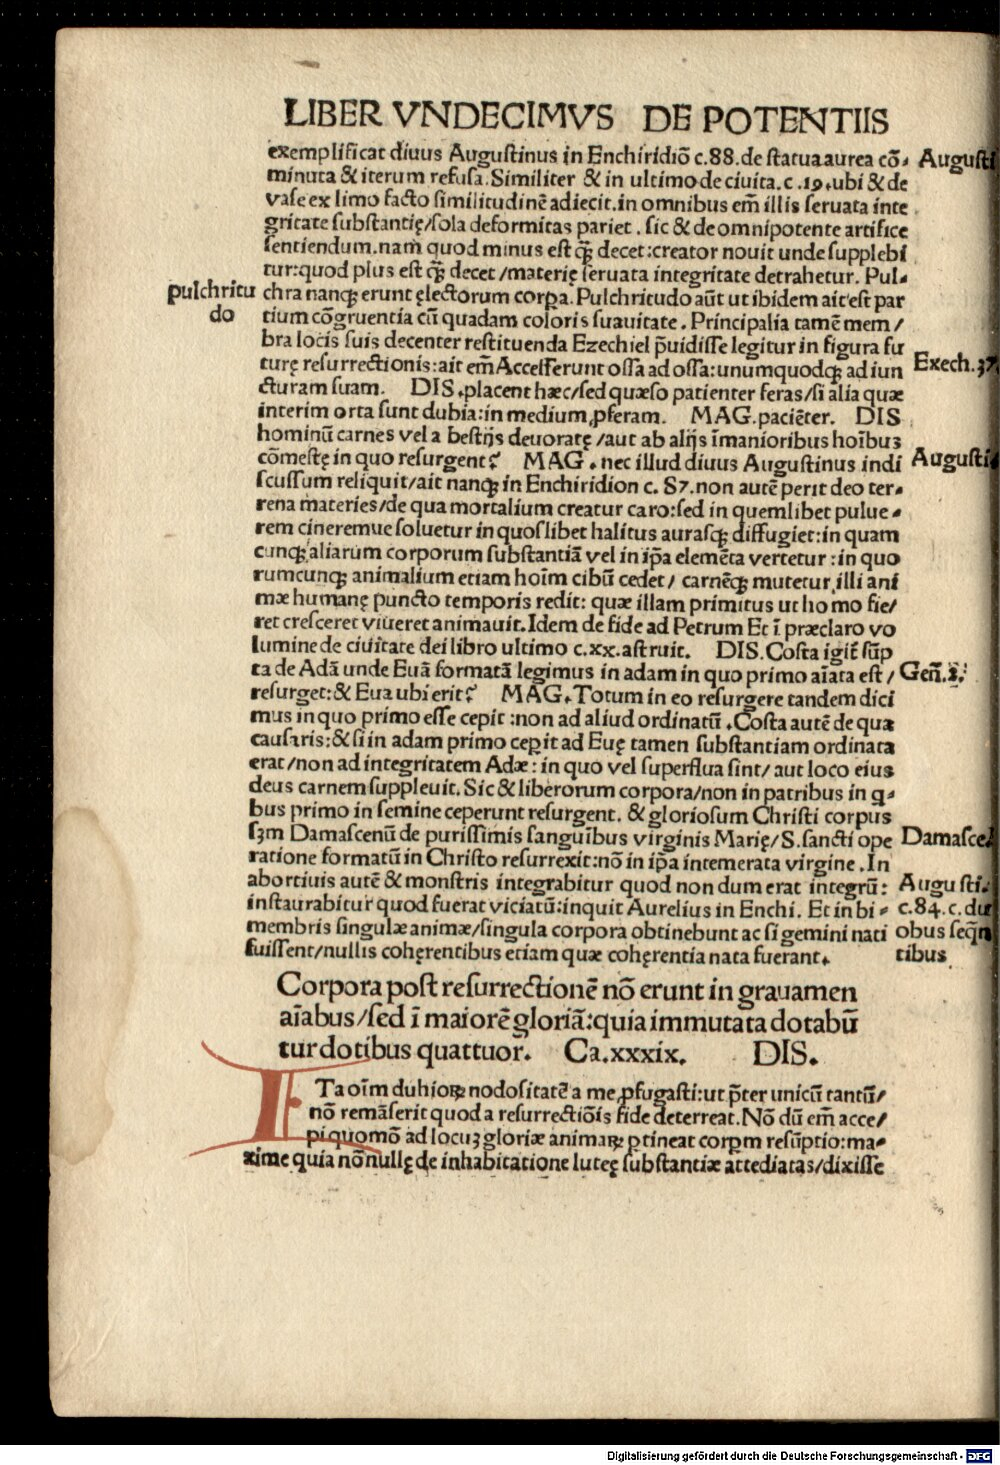 LIBER VNDECIMVS DE POTENTIIS
exemplificat diuus Augustinus in Enchiridiõ c.88.de statua aurea cõ- Augusti
minuta & iterum refusa. Similiter & in ultimo de ciuita. c .19. ubi & de
vase ex limo facto similitudinẽ adiecit. in omnibus em̃ illis seruata inte
gritate substantię/sola deformitas pariet . sic & de omnipotente artifice
sentiendum. nam quod minus est q̃ꝫ decet: creator nouit unde supplebi
tur: quod plus est q̃ꝫ decet /materię seruata integritate detrahetur. Pul-
pulchritu
do
chra nanqꝫ erunt ęlectorum corpa. Pulchritudo aũt ut ibidem ait est par
tium cõgruentia cũ quadam coloris suauitate . Principalia tamẽ mem/
bra locis suis decenter restituenda Ezechiel p̃uidisse legitur in figura fu
turę resurrectionis: ait em̃ Accesserunt ossa ad ossa: unumquodqꝫ ad iun Exech.37
cturam suam. DIS. placent hæc/sed quæso patienter feras/si alia quæ
interim orta sunt dubia: in medium ꝓferam. MAG. paciẽter. DIS
hominũ carnes vel a bestijs deuoratę /aut ab alijs ĩmanioribus hoĩbus
cõmestę in quo resurgent? MAG . nec illud diuus Augustinus indi Augusti
scussum reliquit/ait nanqꝫ in Enchiridion c. 87. non autẽ perit deo ter-
rena materies/de qua mortalium creatur caro: sed in quemlibet pulue-
rem cineremue soluetur in quoslibet halitus aurasqꝫ diffugiet: in quam
cunqꝫ aliarum corporum substantiã vel in ip̃a elemẽta vertetur : in quo
rumcunqꝫ animalium etiam hoĩm cibũ cedet/ carnẽqꝫ mutetur illi ani
mæ humanę puncto temporis redit: quæ illam primitus ut homo fie/
ret cresceret viueret animauit. Idem de fide ad Petrum Et ĩ præclaro vo
lumine de ciuitate dei libro ultimo c.xx. astruit. DIS. Costa igit̃ sũp
ta de Adã unde Euã formatã legimus in adam in quo primo aĩata est / Geñ.2.
resurget: & Eua ubi erit? MAG. Totum in eo resurgere tandem dici
mus in quo primo esse cepit : non ad aliud ordinatũ . Costa autẽ de qua
causaris: & si in adam primo cepit ad Euę tamen substantiam ordinata
erat/non ad integritatem Adæ : in quo vel superflua sint/ aut loco eius
deus carnem suppleuit. Sic & liberorum corpora/non in patribus in q-
bus primo in semine ceperunt resurgent. & gloriosum Christi corpus
sꝫm Damascenũ de purissimis sanguĩbus virginis Marię/S. sancti ope Damasce.
ratione formatũ in Christo resurrexit: nõ in ip̃a intemerata virgine . In
abortiuis autẽ & monstris integrabitur quod non dum erat integrũ: Augusti.
instaurabitur quod fuerat viciatũ: inquit Aurelius in Enchi. Et in bi- c.84. c. du
membris singulæ animæ/singula corpora obtinebunt ac si gemini nati obus seq̃n
fuissent/nullis cohęrentibus etiam quæ cohęrentia nata fuerant. tibus
Corpora post resurrectionẽ nõ erunt in grauamen
aĩabus/sed ĩ maiorẽ gloriã: quia immutata dotabũ
tur dotibus quattuor. Ca.xxxix. DIS.
ITa oĩm dubioꝝ nodositatẽ a me ꝓfugasti: ut p̃ter unicũ tantũ/
nõ remãserit quod a resurrectiõis fide deterreat. Nõ dũ em̃ acce/
pi quomõ ad locuꝫ gloriæ animaꝝ ꝑtineat corpꝝm resũptio: ma-
xime quia nõnullę de inhabitatione luteę substantiæ attediatas/dixisse
Digitalisierung gefördert durch die Deutsche Forschungsgemeinschaft - DFG